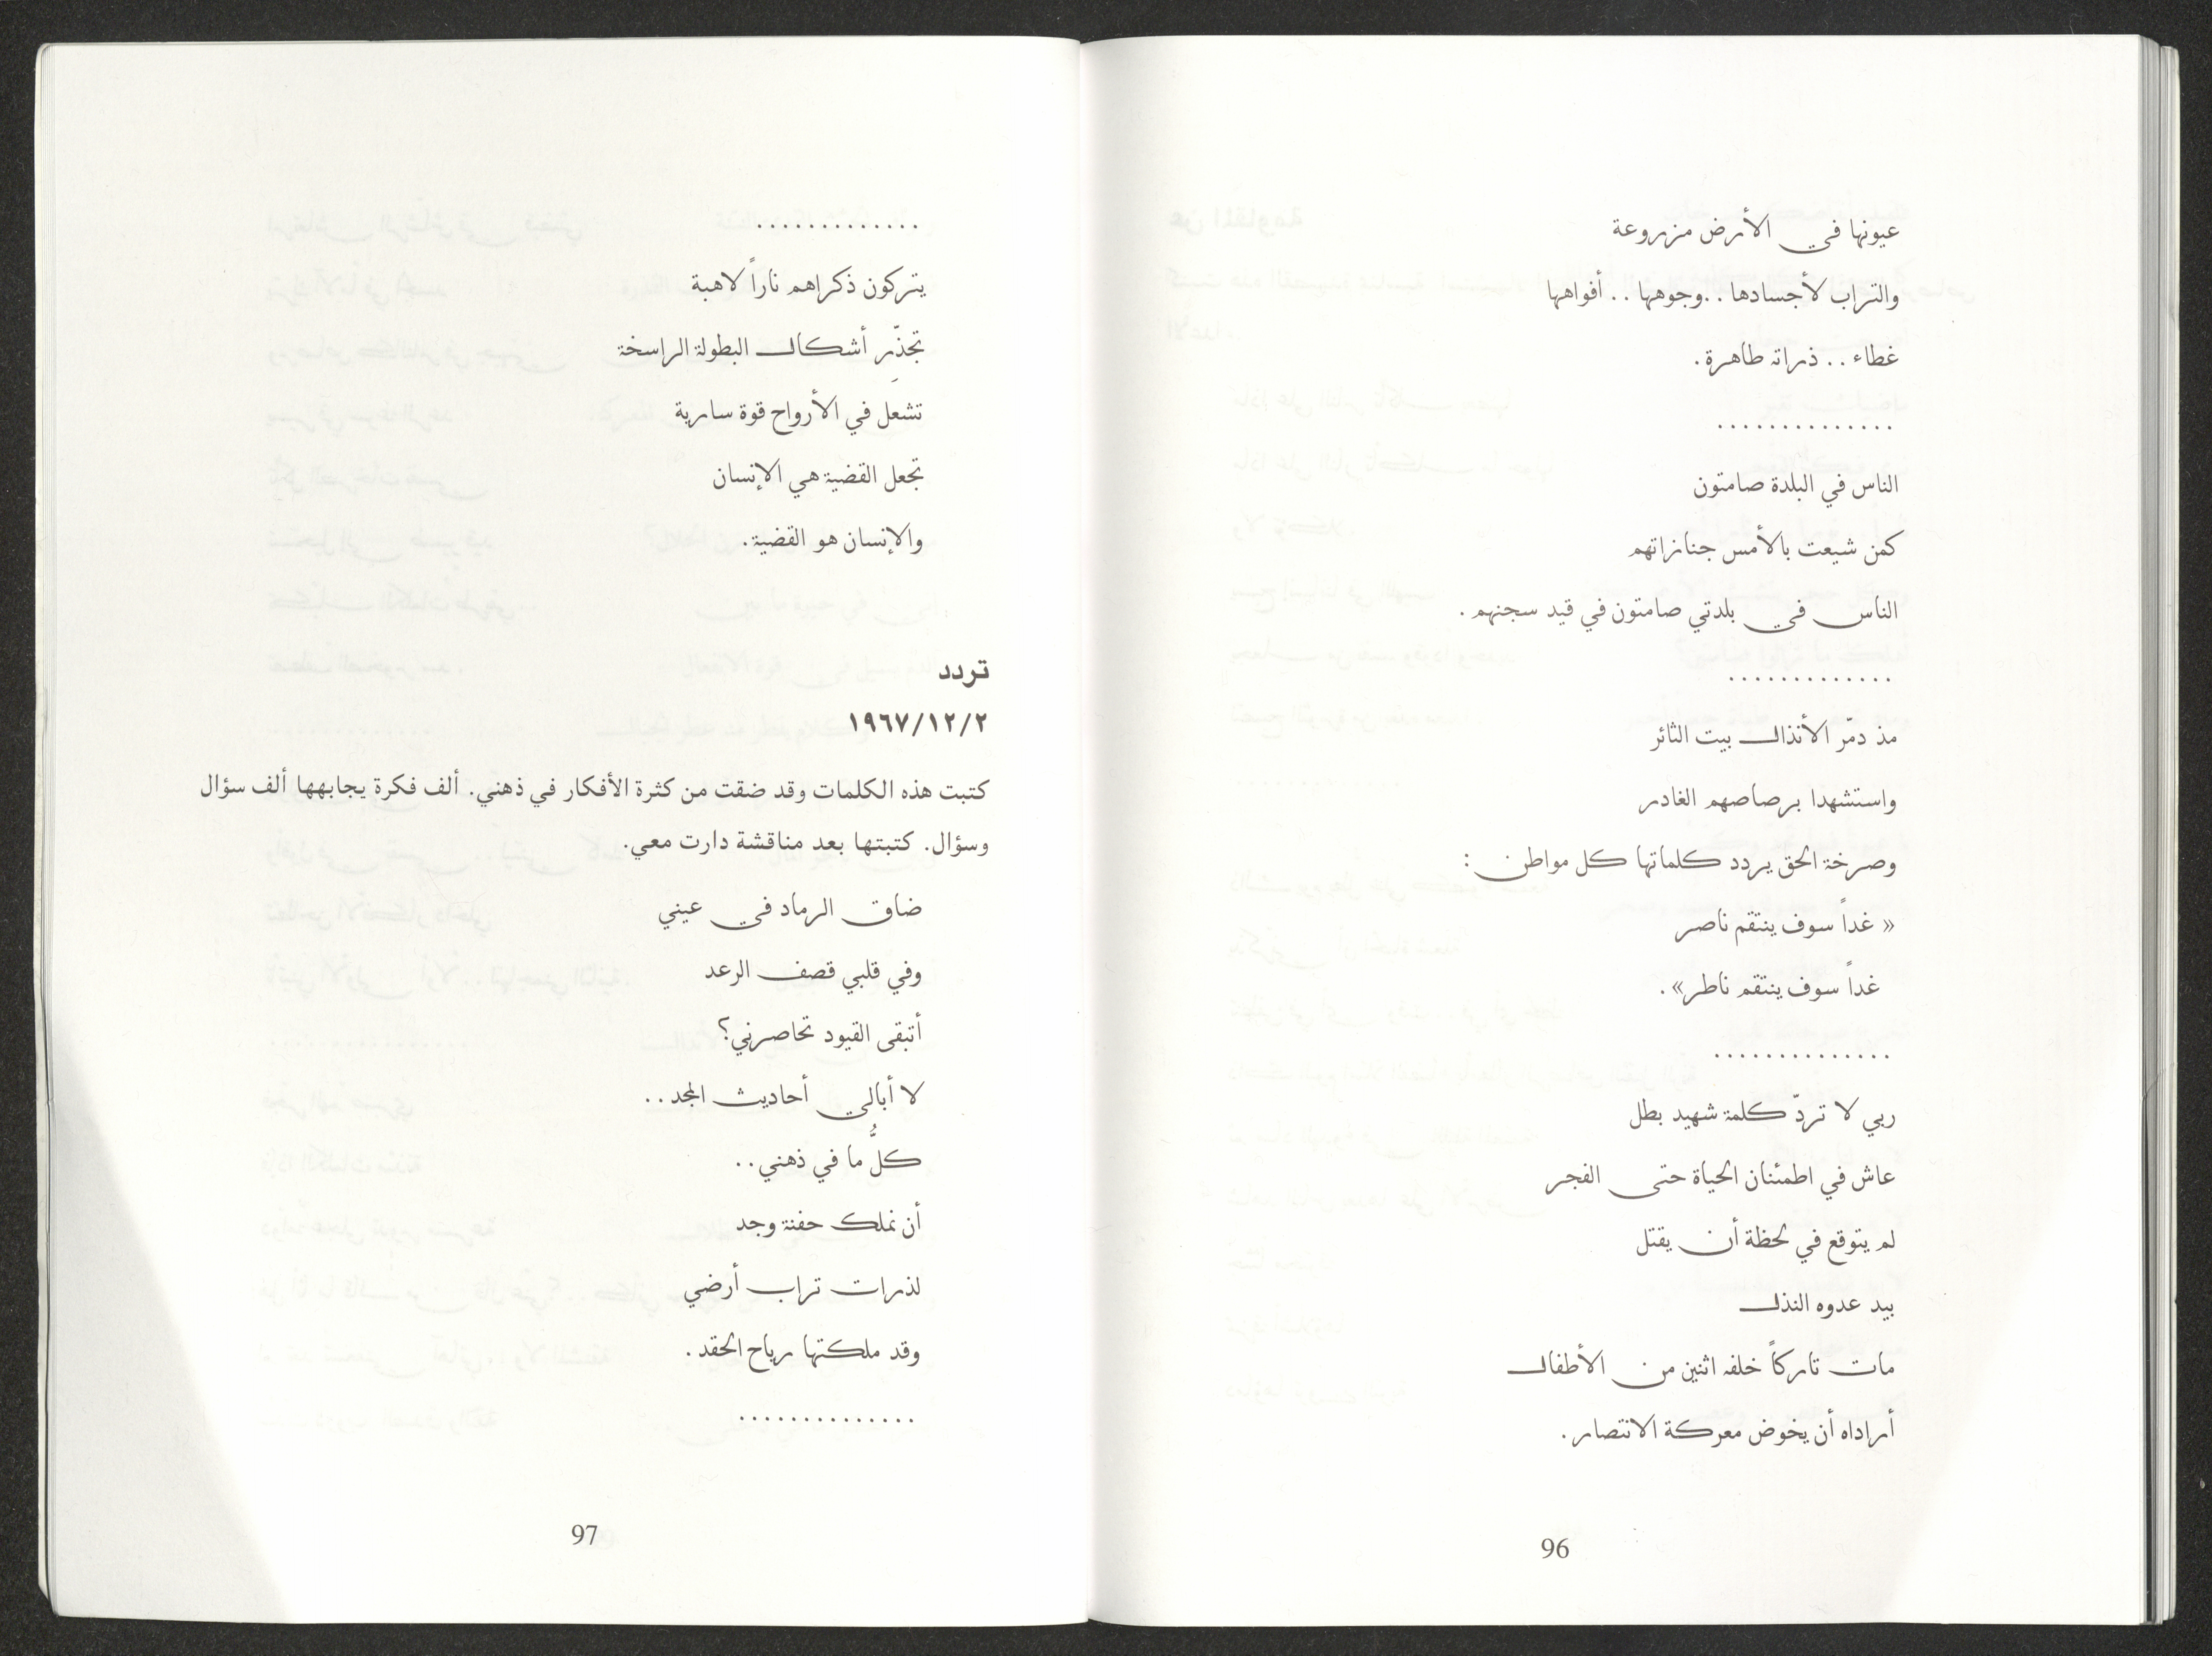 عيونها في الأرض مزروعة
والتراب لأجسادها ..وجوهها .. أفواهها
غطاء .. ذراته طاهرة .
..............
الناس في البلدة صامتون
كمن شيعت بالأمس جنازاتهم
الناس في بلدتي صامتون في قيد سجنهم .
.............
مذ دمّر الأنذال بيت الثائر
واستشهدا برصاصهم الغادر
وصرخة الحق يردد كلماتها كل مواطن :
« غداً سوف ينتقم ناصر
غداً سوف ينتقم ناطر» .
..............
ربي لا تردّ كلمة شهيد بطل
عاش في اطمئنان الحياة حتى الفجر
لم يتوقع في لحظة أن يقتل
بيد عدوه النذل
مات تاركاً خلفه اثنين من الأطفال
أراداه أن يخوض معركة الانتصار .
96
.............
يتركون ذكراهم ناراً لاهبة
تجذّر أشكال البطولة الراسخة
تشعل في الأرواح قوة سارية
تجعل القضية هي الإنسان
والإنسان هو القضية .
تردد
١٩٦٧/١٢/٢
كتبت هذه الكلمات وقد ضقت من كثرة الأفكار في ذهني. ألف فكرة يجابهها ألف سؤال
وسؤال. كتبتها بعد مناقشة دارت معي.
ضاق الرماد في عيني
وفي قلبي قصف الرعد
أتبقى القيود تحاصرني؟
لا أبالي أحاديث المجد ..
كلُّ ما في ذهني ..
أن نملك حفنة وجد
لذرات تراب أرضي
وقد ملكتها رياح الحقد .
..............
97